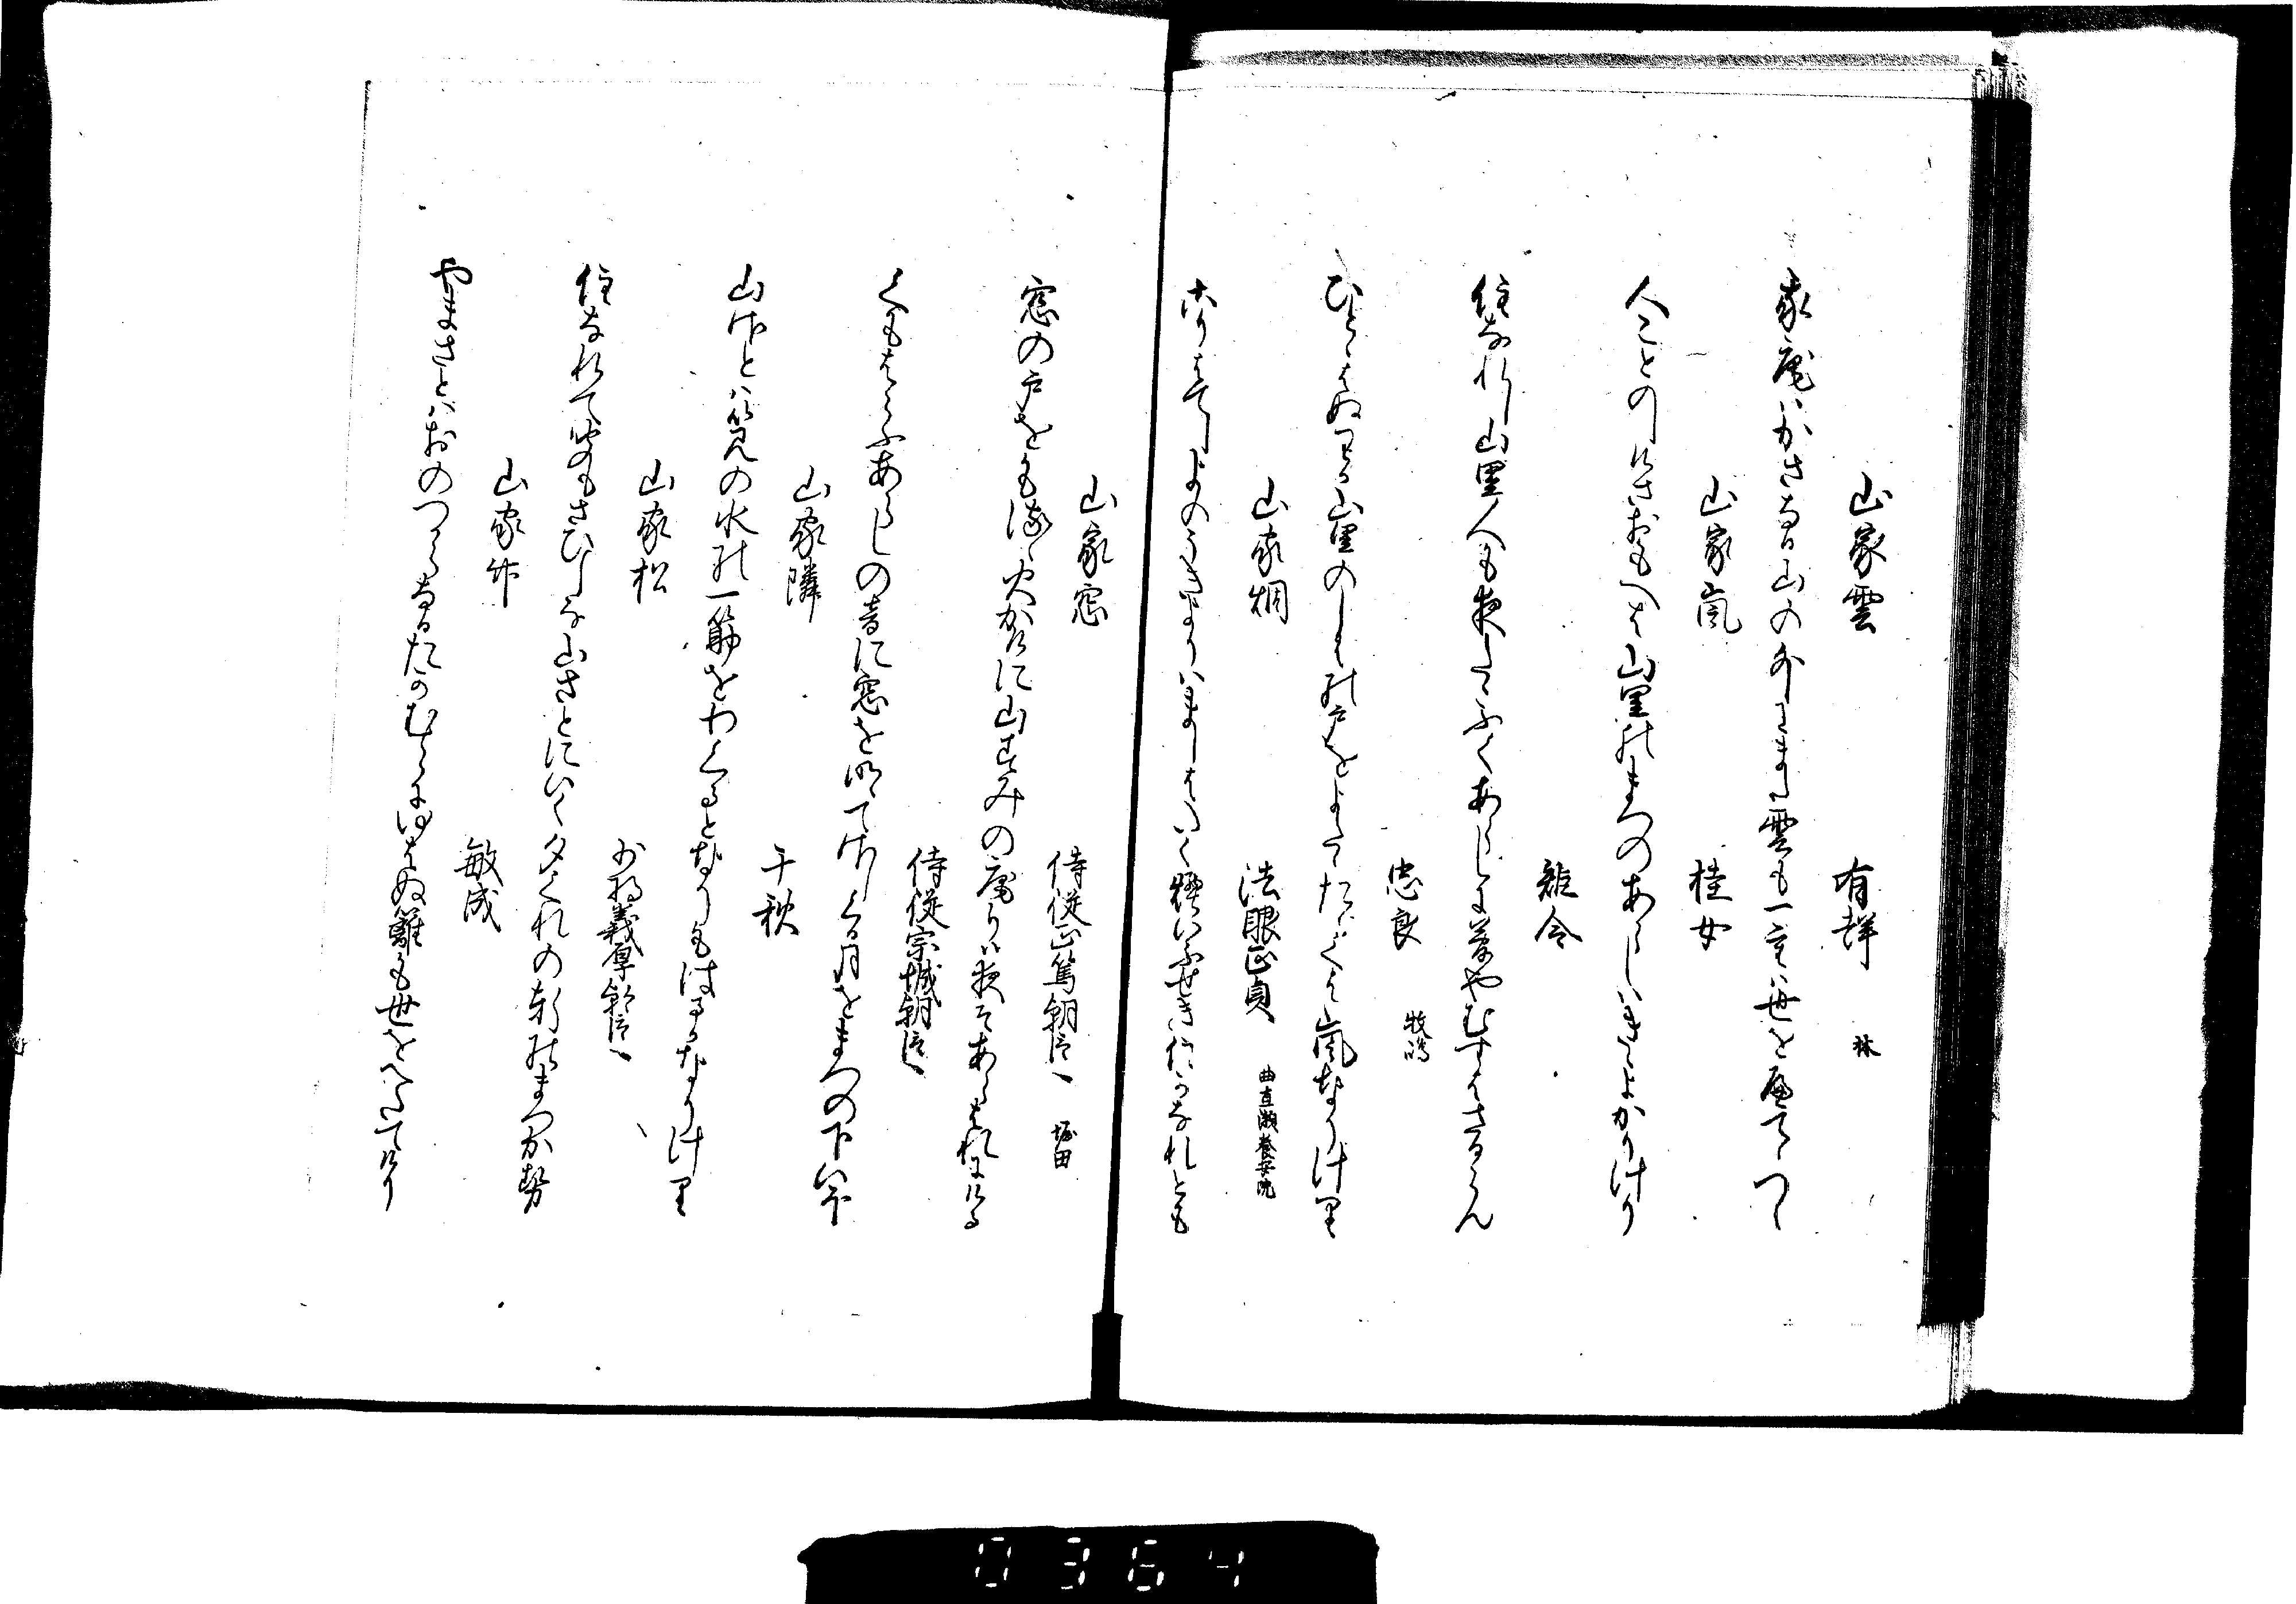 山家雲
有祥 林
我庵はかさなる山の外にまた雲も一重は世を隔てつゝ
山家嵐
桂女
人ことのしけさおもへは山里のまつのあらしはきよかりけり
雄令
住なれし山里人も夜たゝふくあらしに夢やむすはさるらん
忠良 牧嶋
ひとゝはぬわか山里のしはの戸をよたゝたゝくは嵐なりけり
山家烟
法眼正貞 曲直瀬養安院
こりはてしよのうきよりはましはたく煙いふせき住ゐなれとも
山家窓
侍従正篤朝臣 堀田
窓の戸をもる火かけに山すみの庵りは夜そあらはれにける
侍従宗城朝臣
くもはらふあらしの音に窓を明て
月をまつの下いほ
山家隣
千秋
山さとは筧の水の一筋をわくるとなりもはるかなりけり
山家松
少将義厚朝臣
住なれて
さひしな山さとにいく夕くれの軒のまつか勢
山家竹
敏成
やまさとはおのつからなるたかむらにゆはぬ籬も世をへたてけり